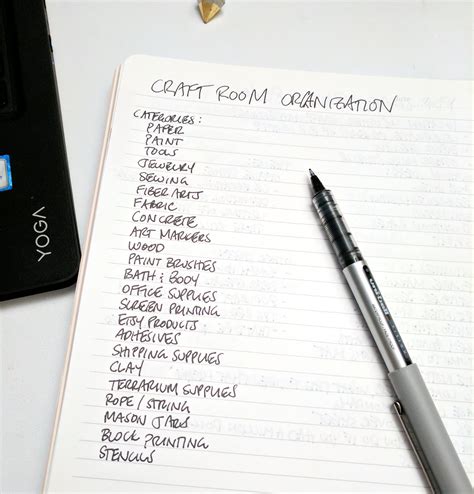 CRAFT ROOM ORGANIZATION
CATEGORIES:
PAPER
PAINT
TOOLS
JEWELRY
SEWING
FIBER ARTS
FABRIC
CONCRETE
ART MARKERS
WOOD
PAINT BRUSHES
BATH & BODY
OFFICE SUPPLIES
SCREEN PRINTING
ETSY PRODUCTS
ADHESIVES
SHIPPING SUPPLIES
CLAY
TERRARIUM SUPPLIES
ROPE / STRING
MASON JARS
BLOCK PRINTING
STENCILS
YOGA